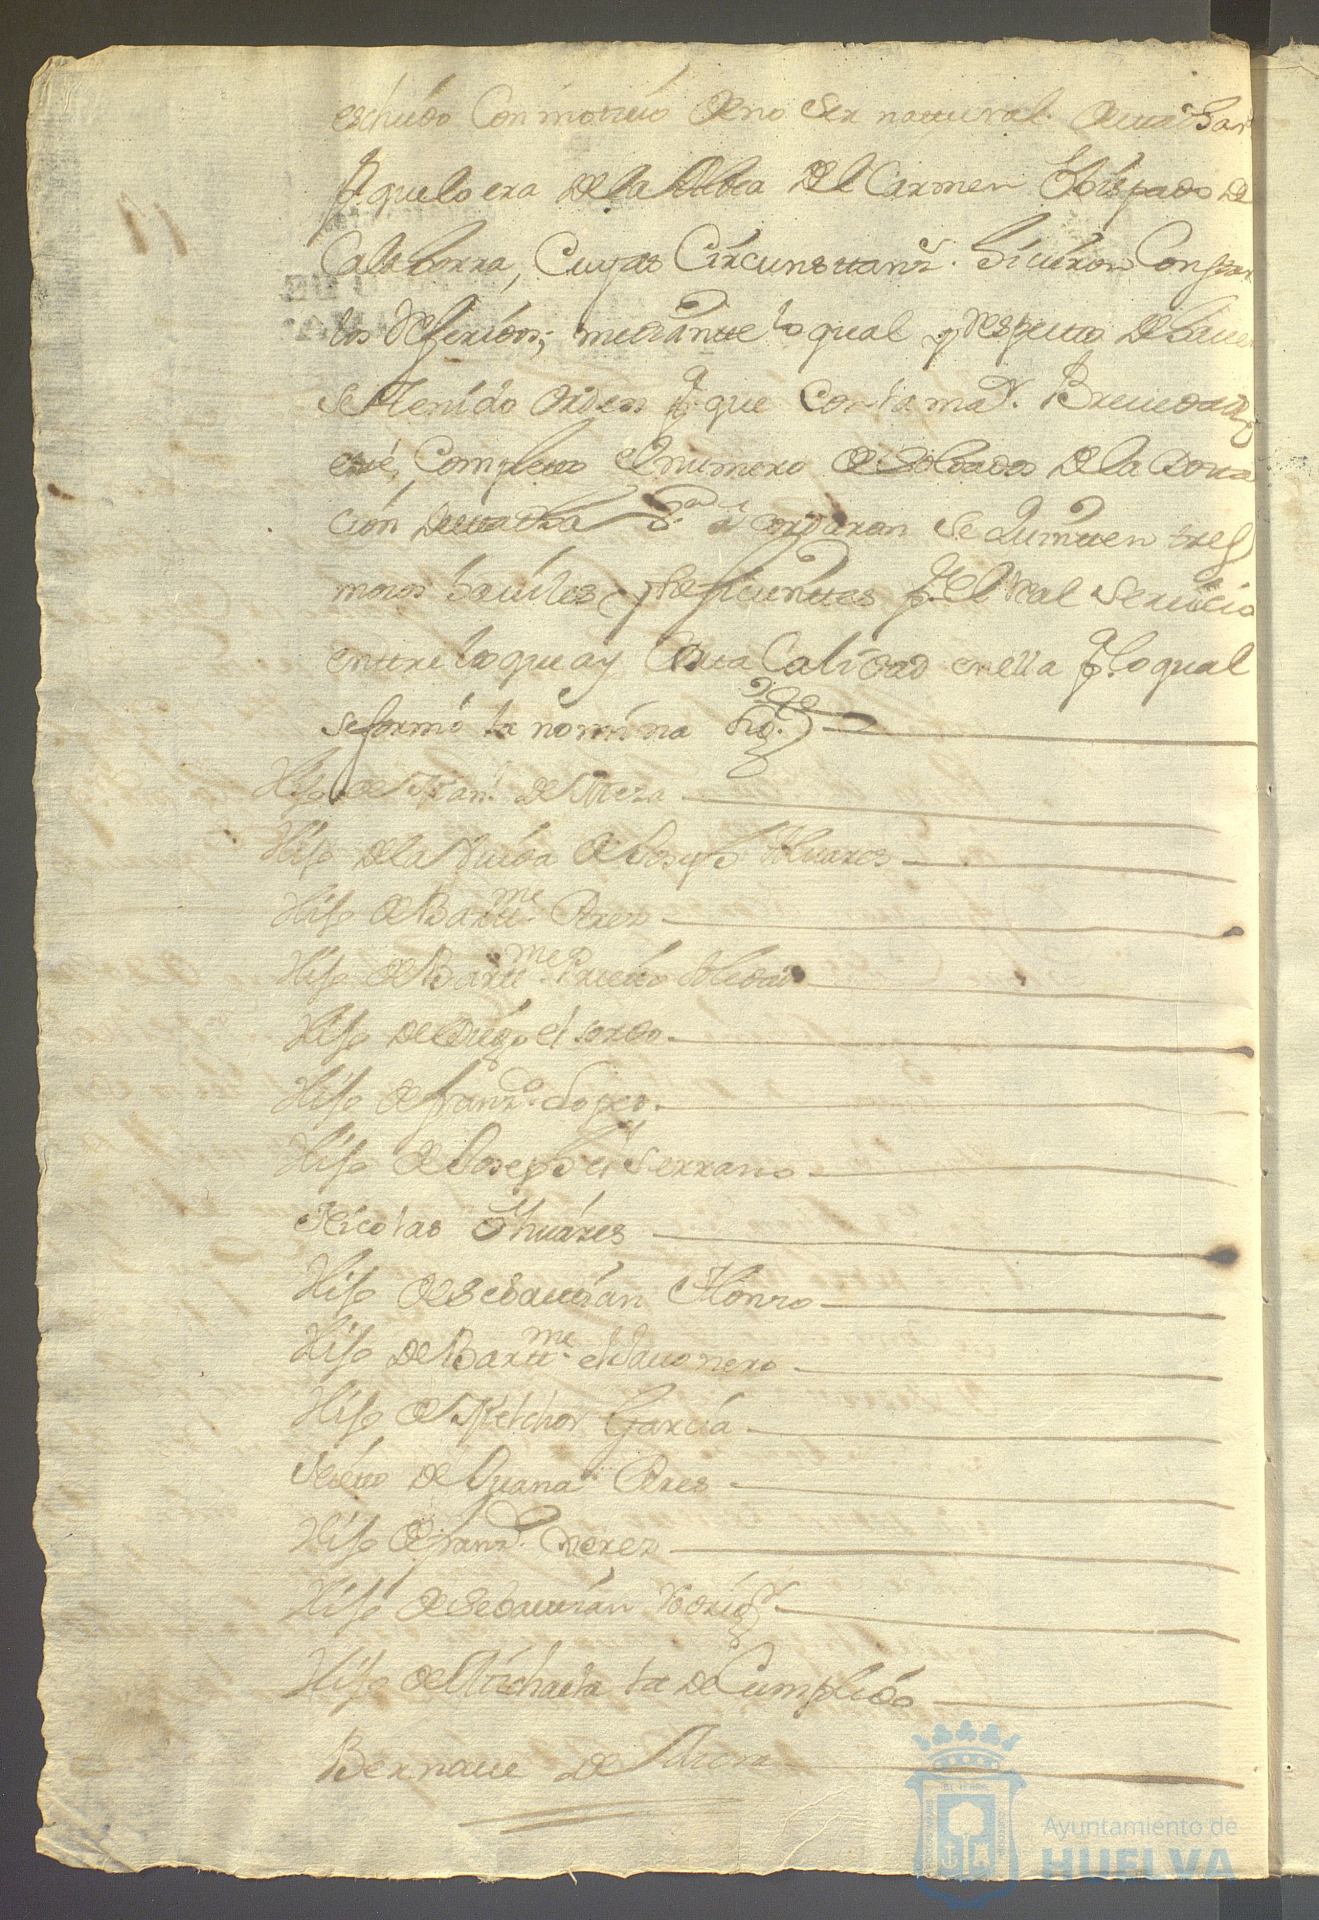 escluido Con motiuo de no ser natural de
pr. que lo era de la Aldea del Carmen Obispado de
Calahorra, Cuyas Circunstanz.s hicieron Constar
los Referidos; mediante lo qual y respecto de hauer
se Tenido orden pa. que con la mar. Breuedad
esté Completo el numero de Soldados de la Dota
cion de acordaron se Quinten tres
mozos hauiles y suficientes pa. el Real Seruicio
entre lo que ay Desta Calidad en ella pr. lo qual
se formó la nomina sigte.
Hijo de Man.l de Mesa
Hijo de la Viuda de Joseph Aluares
Hijo de Bartt.me Perez
Hijo de Bartt.me Prieto
Hijo de Diego el sordo
Hijo de Franz.co Lopez
Hijo de Joseph el Serrano
Nicolas Suáres
Hijo de Sebastian Alonzo
Hijo de Bartt.me el Jauonero
Hijo de Melchor Garcia
Nieto de Juana Peres
Hijo de Franz.co Perez
Hijo de Sebastian Rodrig.z
Hijo de Michaela la de Cumplido
Bernaue de
Ayuntamiento de
HUELVA